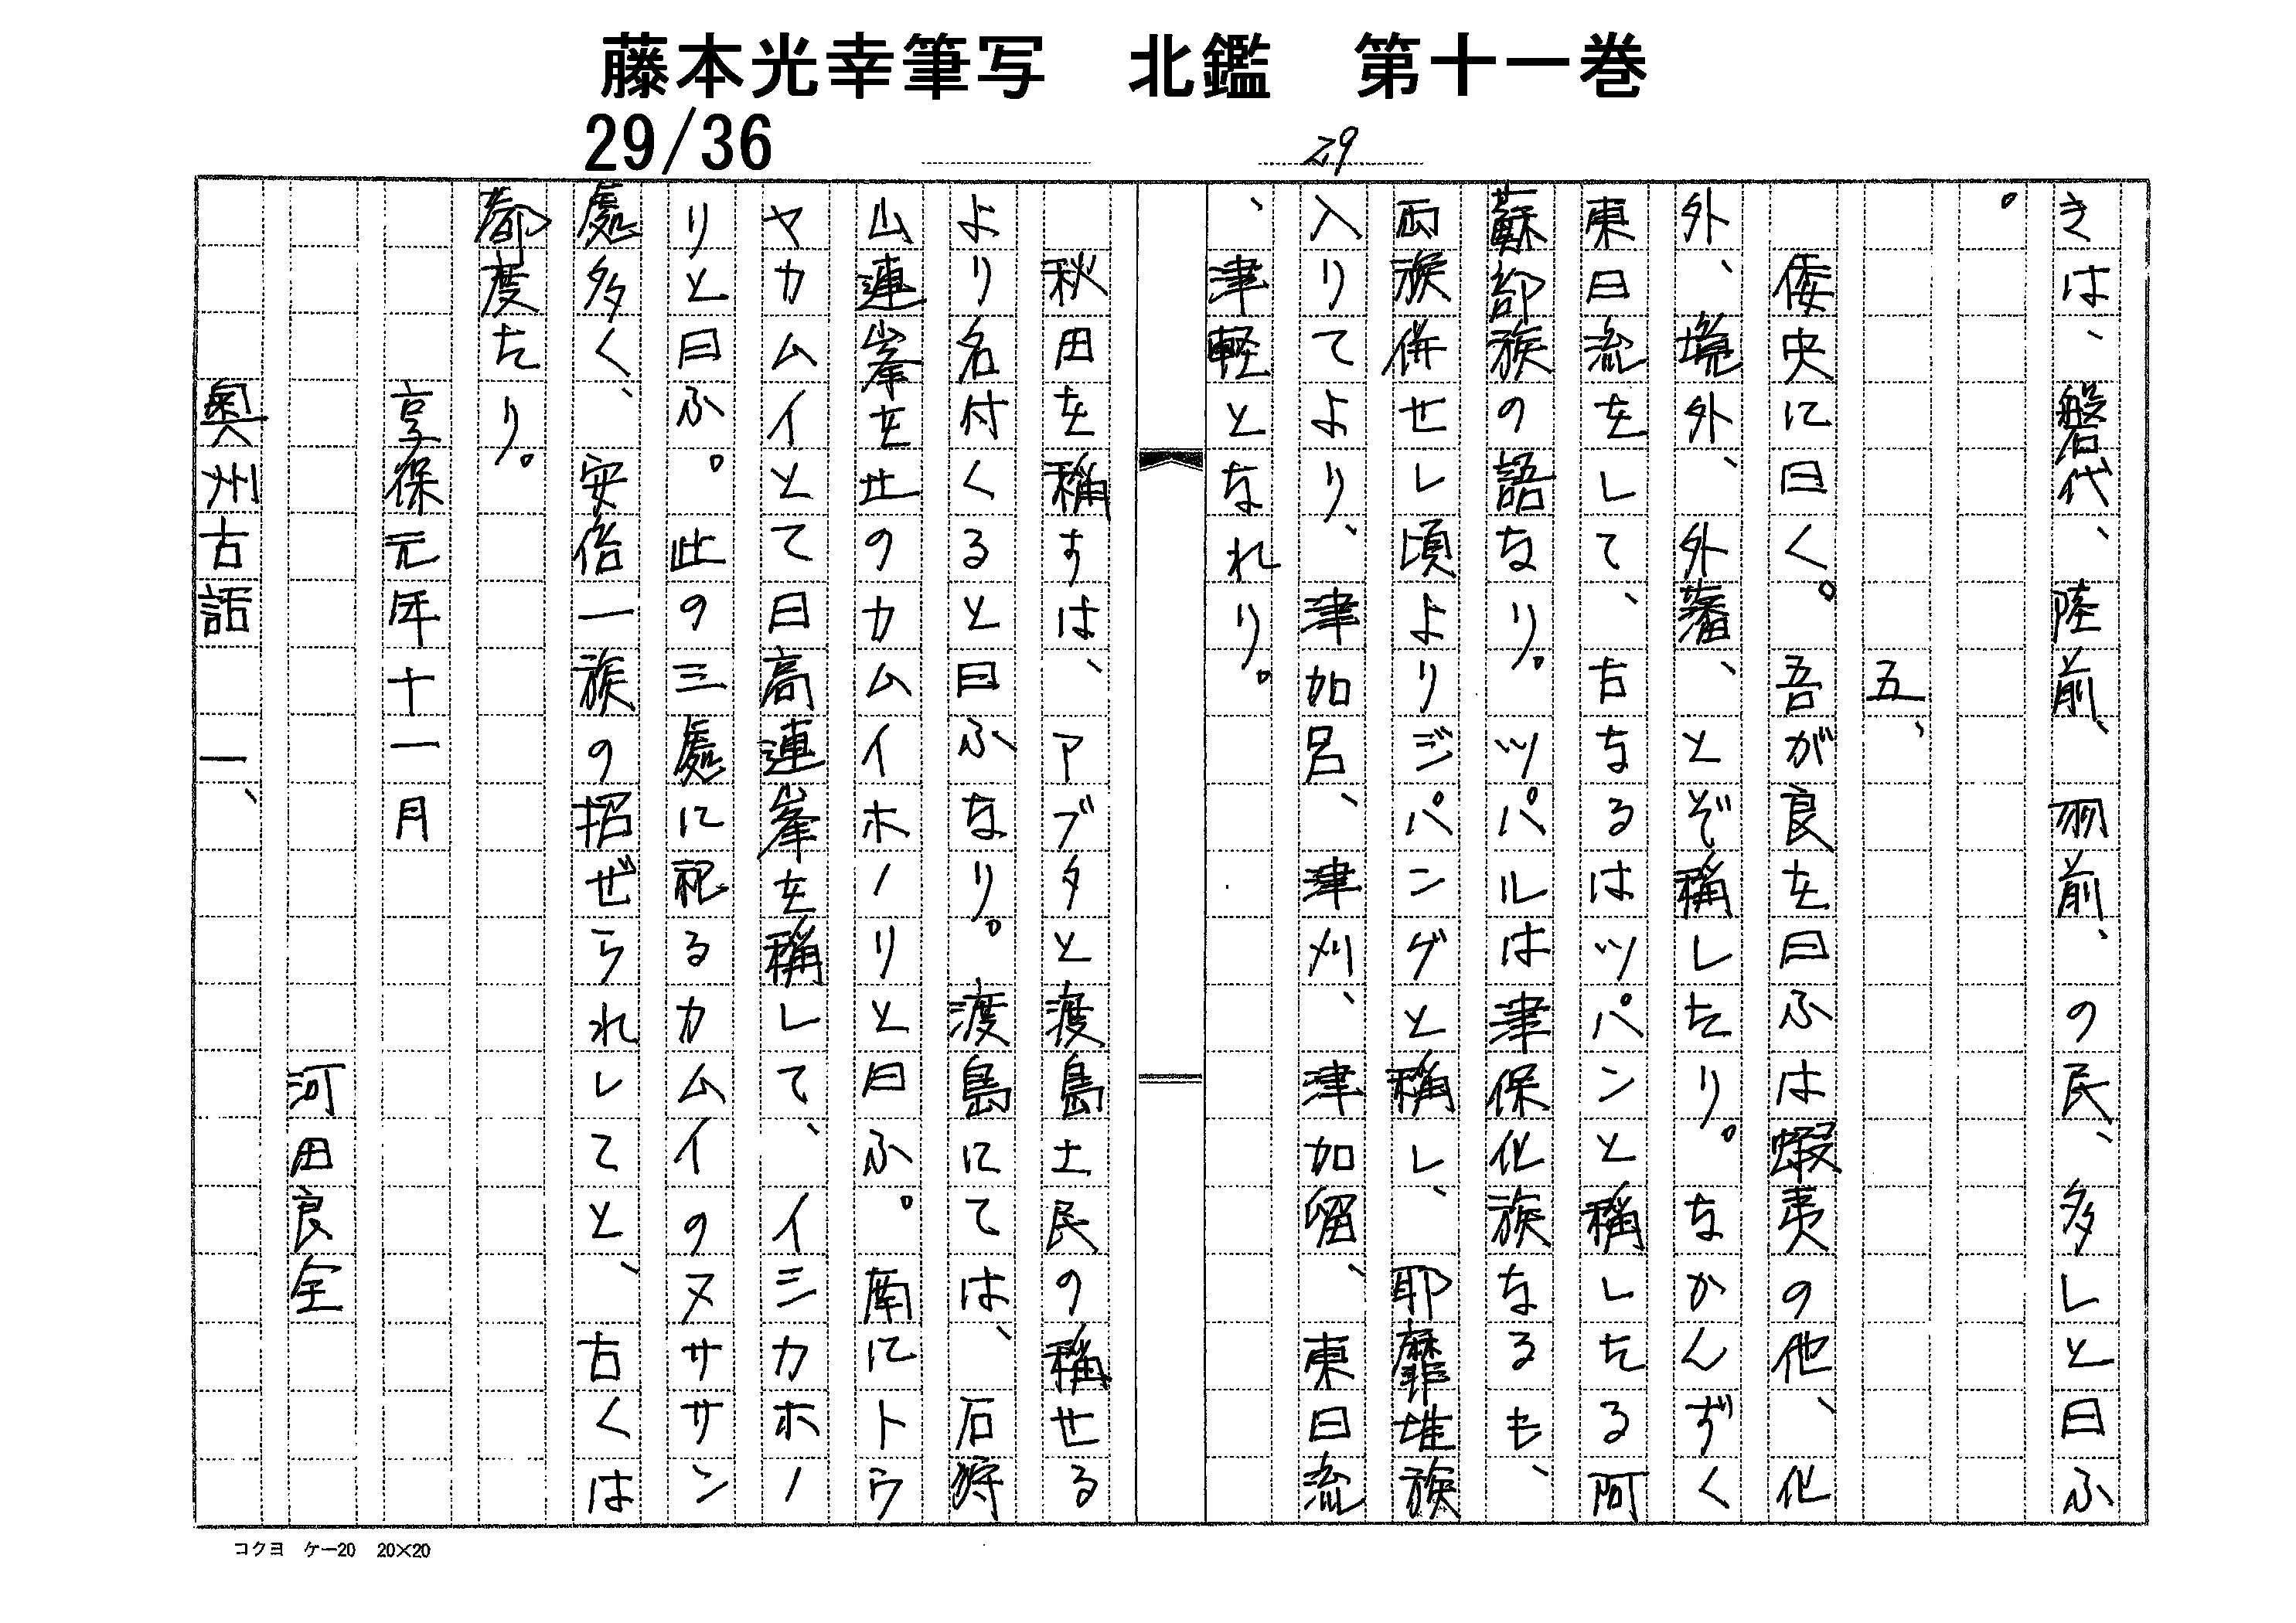 藤本光幸筆写　北鑑　第十一巻
29/36
29
きは、磐代、陸前、羽前、の民、多しと曰ふ
。
五、
倭史に曰く。吾が良を曰ふは蝦夷の他、化
外、境外、外藩、とぞ稱したり。なかんずく
東日流をして、古なるはツパンと稱したる阿
蘇部族の語なり。ツパルは津保化族なるも、
両族併せし頃よりジパングと稱し、耶靡堆族
入りてより、津加呂、津刈、津加留、東日流
、津軽となれり。
秋田を稱すは、アブタと渡島土民の稱せる
より名付くると曰ふなり。渡島にては、石狩
山連峯を北のカムイホノリと曰ふ。南にトウ
ヤカムイとて日高連峯を稱して、イシカホノ
リと曰ふ。此の三處に祀るカムイのヌササン
處多く、安倍一族の招ぜられしてと、古くは
都度たり。
享保元年十一月
河田良全
奥州古話　一、
コクヨ　ケー20　20×20